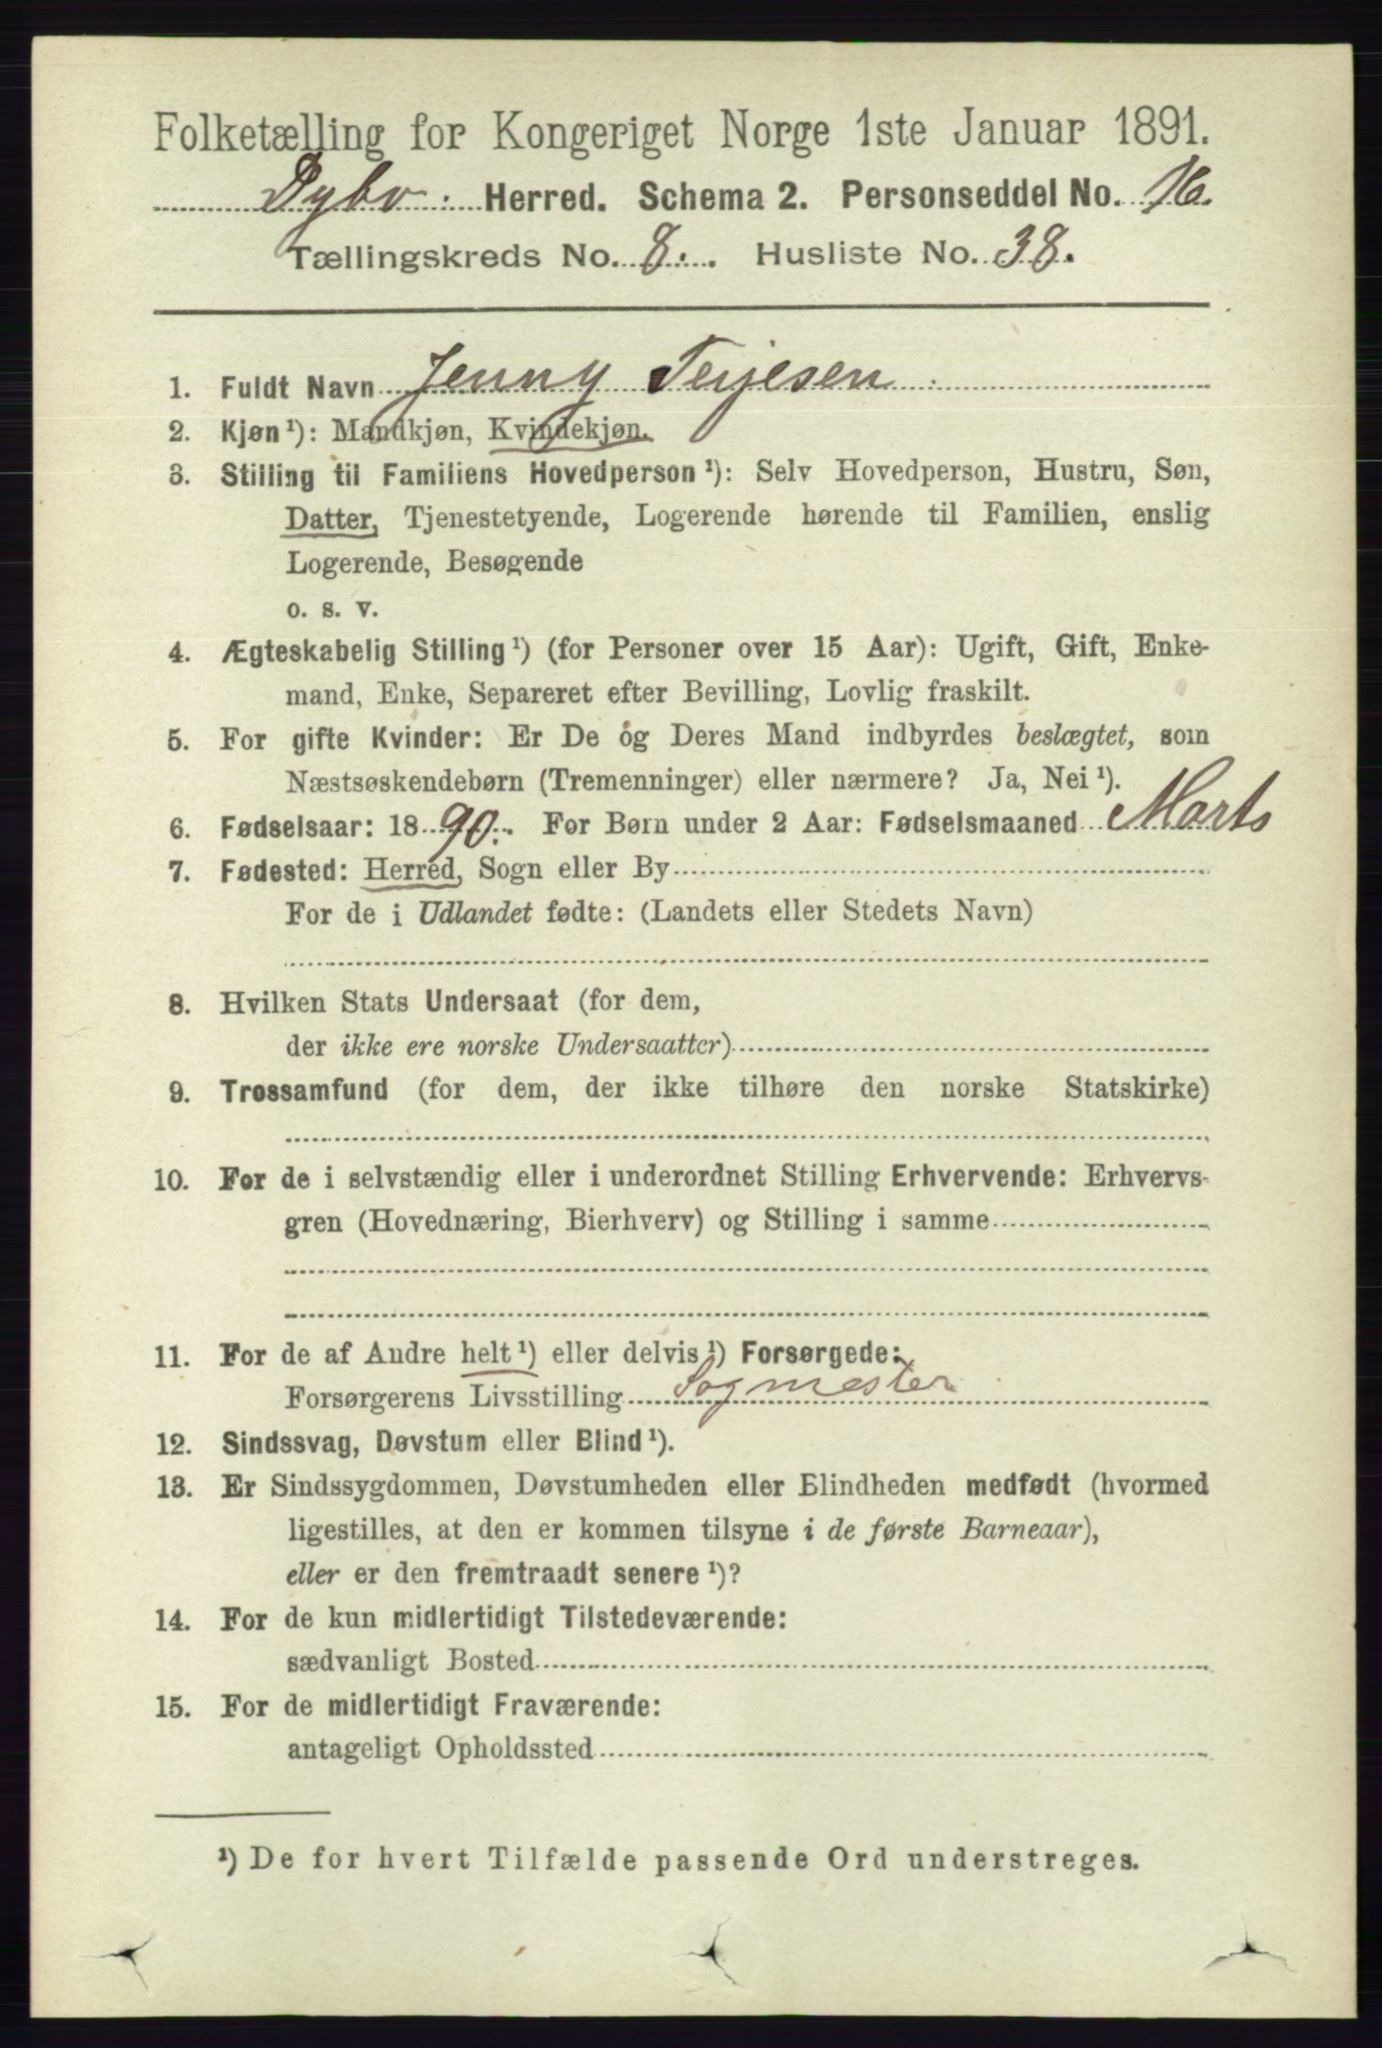 Folketælling for Kongeriget Norge 1ste Januar 1891.
Dybv. Herred. Schema 2. Personseddel No. 16.
Tællingskreds No. 8. Husliste No. 38.
1. Fuldt Navn Jenny Terjesen
2. Kjøn¹): Mandkjøn, Kvindekjøn.
3. Stilling til Familiens Hovedperson¹): Selv Hovedperson, Hustru, Søn,
Datter, Tjenestetyende, Logerende hørende til Familien, enslig
Logerende, Besøgende
o. s. v.
4. Ægteskabelig Stilling¹) (for Personer over 15 Aar): Ugift, Gift, Enke-
mand, Enke, Separeret efter Bevilling, Lovlig fraskilt.
5. For gifte Kvinder: Er De og Deres Mand indbyrdes beslægtet, som
Næstsøskendebørn (Tremenninger) eller nærmere? Ja, Nei¹).
6. Fødselsaar: 1890. For Børn under 2 Aar: Fødselsmaaned Marts
7. Fødested: Herred, Sogn eller By
For de i Udlandet fødte: (Landets eller Stedets Navn)
8. Hvilken Stats Undersaat (for dem,
der ikke ere norske Undersaatter)
9. Trossamfund (for dem, der ikke tilhøre den norske Statskirke)
10. For de i selvstændig eller i underordnet Stilling Erhvervende: Erhvervs-
gren (Hovednæring, Bierhverv) og Stilling i samme
11. For de af Andre helt¹) eller delvis¹) Forsørgede:
Forsørgerens Livsstilling Sogmester
12. Sindssvag, Døvstum eller Blind¹).
13. Er Sindssygdommen, Døvstumheden eller Blindheden medfødt (hvormed
ligestilles, at den er kommen tilsyne i de første Barneaar),
eller er den fremtraadt senere¹)?
14. For de kun midlertidigt Tilstedeværende:
sædvanligt Bosted
15. For de midlertidigt Fraværende:
antageligt Opholdssted
¹) De for hvert Tilfælde passende Ord understreges.